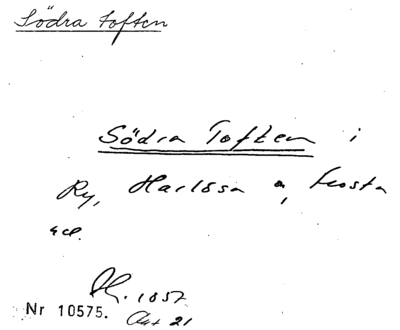 Södra toften
Södra Toften i
Ry, Harlösa o, Frosta
hd.
1857
Nr 10575. Akt 21